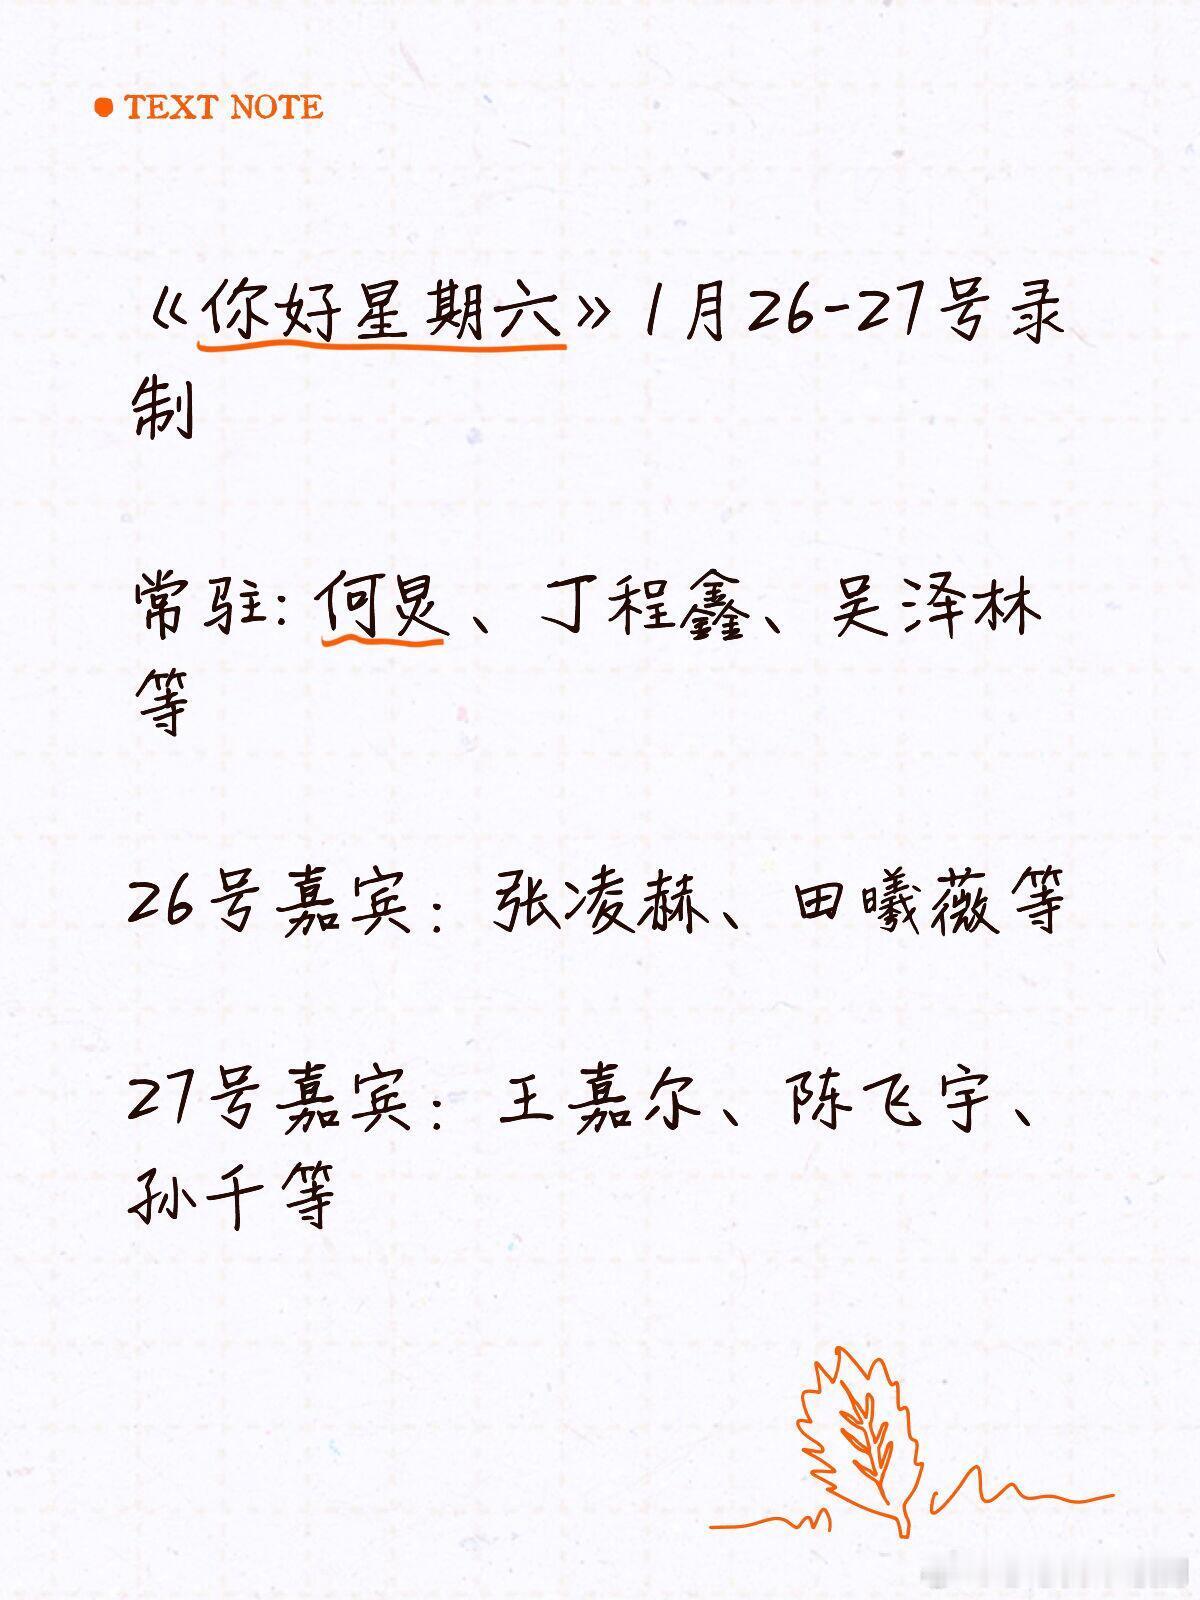 TEXT NOTE
《你好星期六》1月26-27号录
制
常驻:何炅、丁程鑫、吴泽林
等
26号嘉宾：张凌赫、田曦薇等
27号嘉宾：王嘉尔、陈飞宇、
孙千等